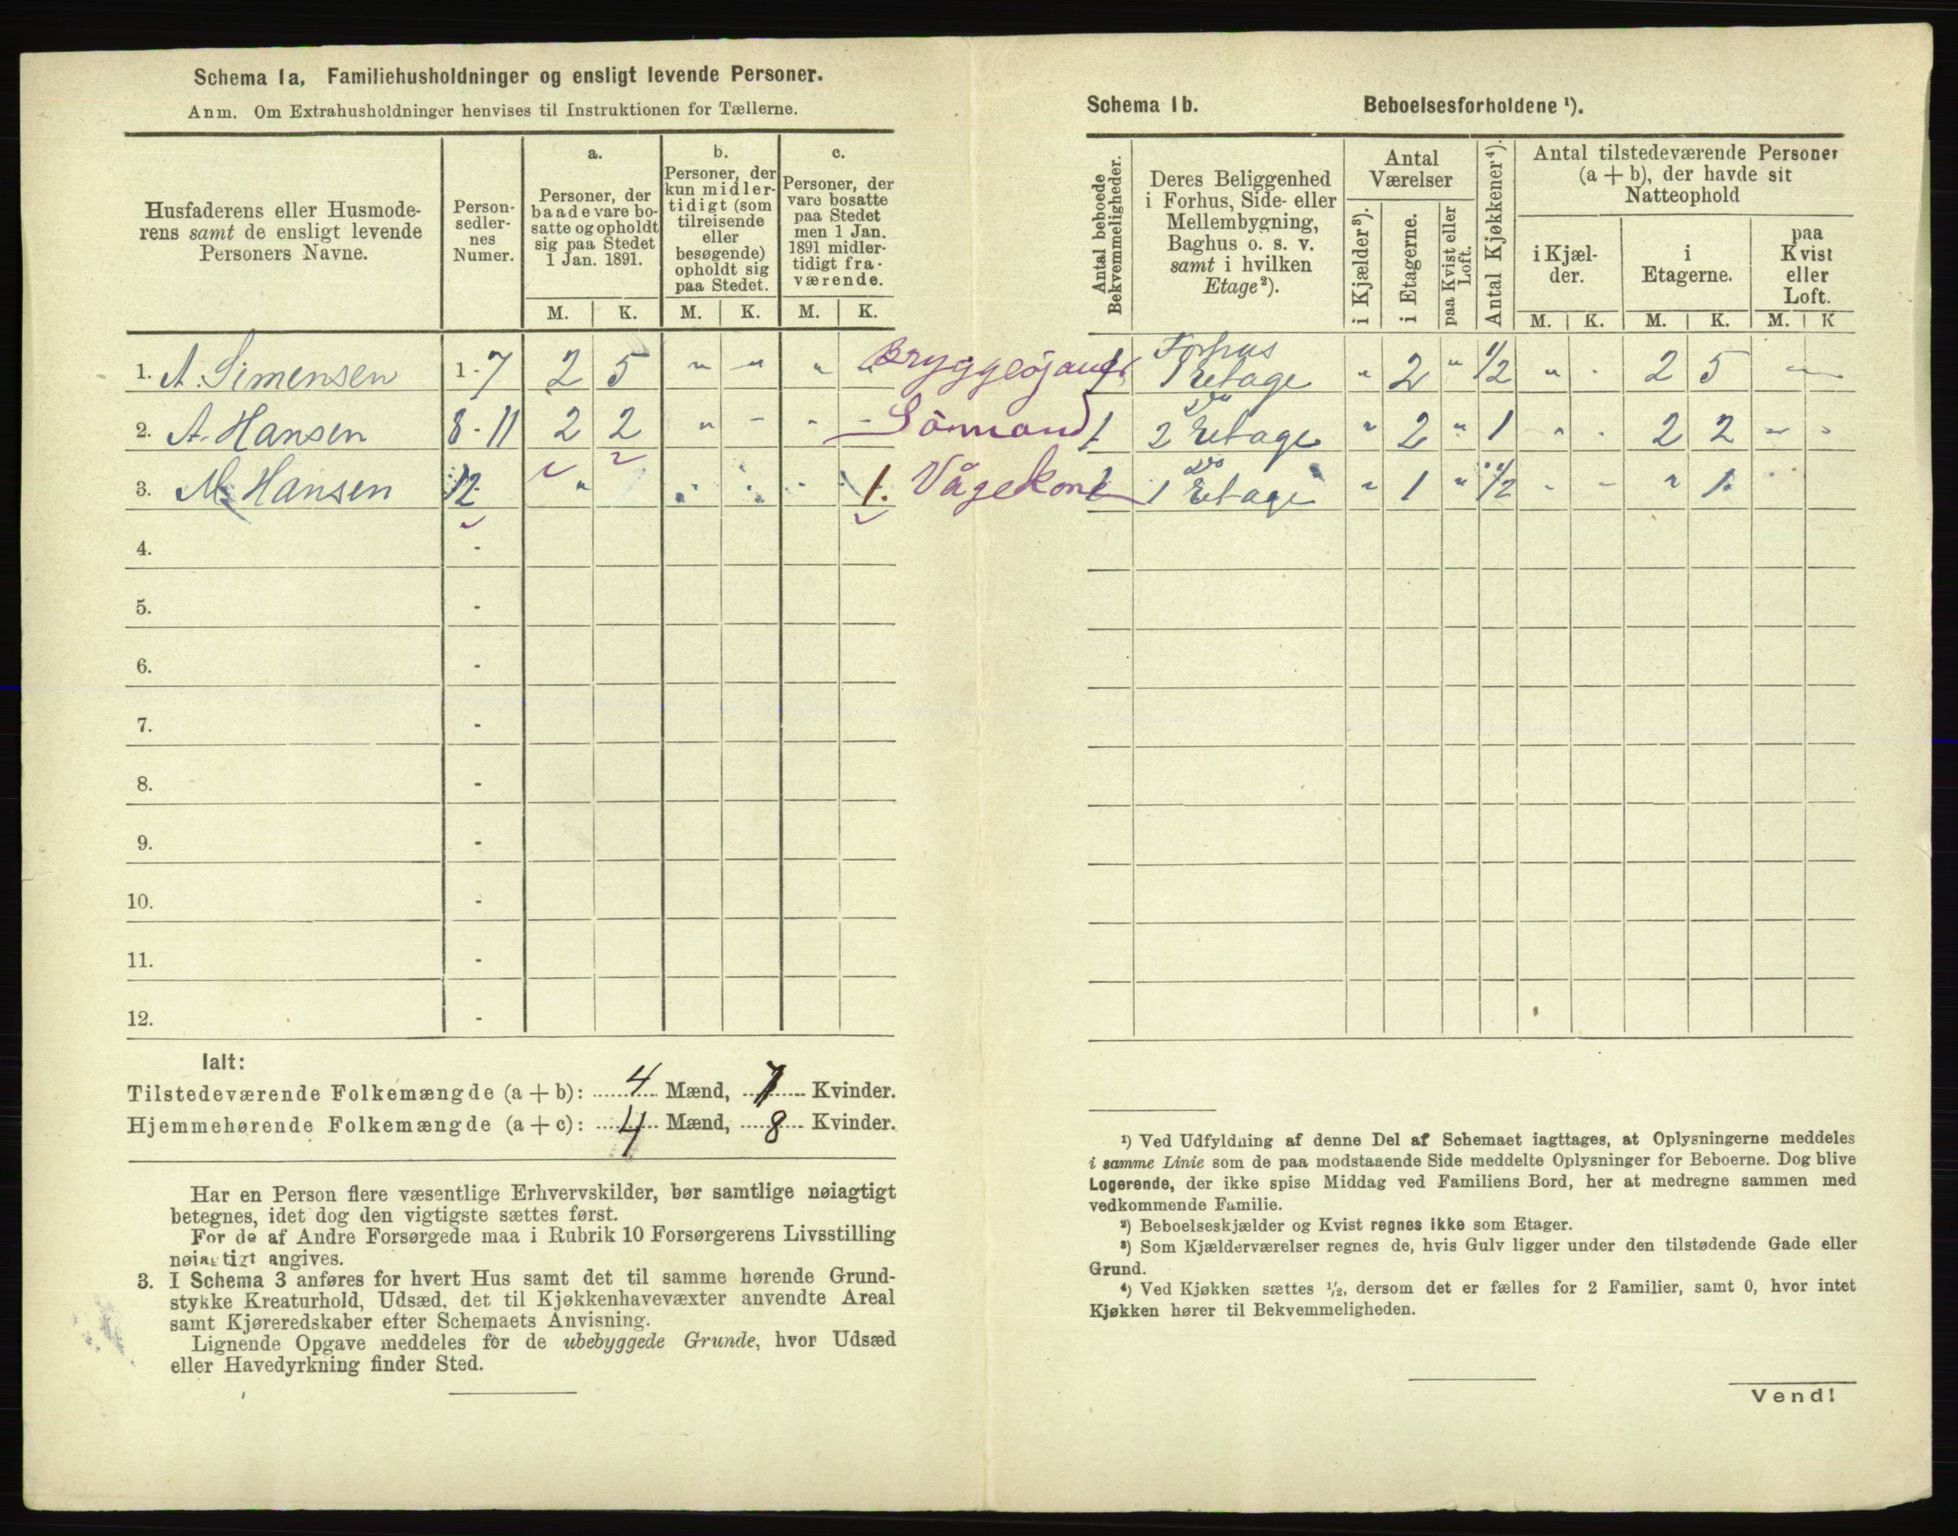 Schema 1a, Familiehusholdninger og ensligt levende Personer.
Anm. Om Extrahusholdninger henvises til Instruktionen for Tællerne.
Husfaderens eller Husmode-
rens samt de ensligt levende
Personers Navne.
Person-
sedler-
nes
Numer.
a.
Personer, der
baade vare bo-
satte og opholdt
sig paa Stedet
1 Jan. 1891.
b.
Personer, der
kun midler-
tidigt (som
tilreisende
eller
besøgende)
opholdt sig
paa Stedet.
c.
Personer, der
vare bosatte
paa Stedet
men 1 Jan.
1891 midler-
tidigt fra-
værende.
M. K. M. K. M. K.
1. A. Simensen 1-7 2 5 " " "
2. A. Hansen 8-11 2 2 " - " -
3. M. Hansen 12 " 1.
4. -
5. -
6. -
7. -
8. -
9. -
10. -
11. -
12. -
Ialt:
Tilstedeværende Folkemængde (a + b): 4 Mænd, 7 Kvinder.
Hjemmehørende Folkemængde (a + c): 4 Mænd, 8 Kvinder.
Har en Person flere væsentlige Erhvervskilder, bør samtlige nøiagtigt
betegnes, idet dog den vigtigste sættes først.
For de af Andre Forsørgede maa i Rubrik 10 Forsørgerens Livsstilling
nøiagtigt angives.
3. I Schema 3 anføres for hvert Hus samt det til samme hørende Grund-
stykke Kreaturhold, Udsæd, det til Kjøkkenhavevæxter anvendte Areal
samt Kjøreredskaber efter Schemaets Anvisning.
Lignende Opgave meddeles for de ubebyggede Grunde, hvor Udsæd
eller Havedyrkning finder Sted.
Schema 1b. Beboelsesforholdene ¹).
Antal beboede
Bekvemmeligheder.
Deres Beliggenhed
i Forhus, Side- eller
Mellembygning,
Baghus o. s. v.
samt i hvilken
Etage²).
Antal
Værelser
i Kjælder³).
i Etagerne.
paa Kvist eller
Loft.
Antal Kjøkkener⁴).
Antal tilstedeværende Personer
(a + b), der havde sit
Natteophold
i Kjæl-
der.
i
Etagerne.
paa
Kvist
eller
Loft.
M. K. M. K. M. K
Bryggesjauer 1 Forhus
1 Etage " 2 " 1/2 " - 2 5 -
Sömand 1 Do
2 Etage " 2 " 1 " - 2 2 " "
Vågekone 1 Do
1 Etage " 1 " 1/2 - - " 1.
¹) Ved Udfyldning af denne Del af Schemaet iagttages, at Oplysningerne meddeles
i samme Linie som de paa modstaaende Side meddelte Oplysninger for Beboerne. Dog blive
Logerende, der ikke spise Middag ved Familiens Bord, her at medregne sammen med
vedkommende Familie.
²) Beboelseskjælder og Kvist regnes ikke som Etager.
³) Som Kjælderværelser regnes de, hvis Gulv ligger under den tilstødende Gade eller
Grund.
⁴) Ved Kjøkken sættes ½, dersom det er fælles for 2 Familier, samt 0, hvor intet
Kjøkken hører til Bekvemmeligheden.
Vend!